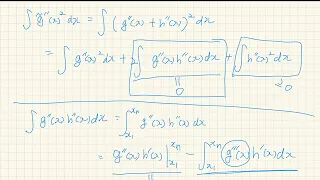 ∫ g̃''(x)² dx = ∫ (g''(x) + h''(x))² dx
= ∫ g''(x)² dx + 2∫ g''(x) h''(x) dx + ∫ h''(x)² dx
|| 0 ≥0
∫ g''(x) h''(x) dx = ∫_{x_1}^{x_n} g''(x) h''(x) dx
= g''(x) h'(x) |_{x_1}^{x_n} - ∫_{x_1}^{x_n} g'''(x) h'(x) dx
||